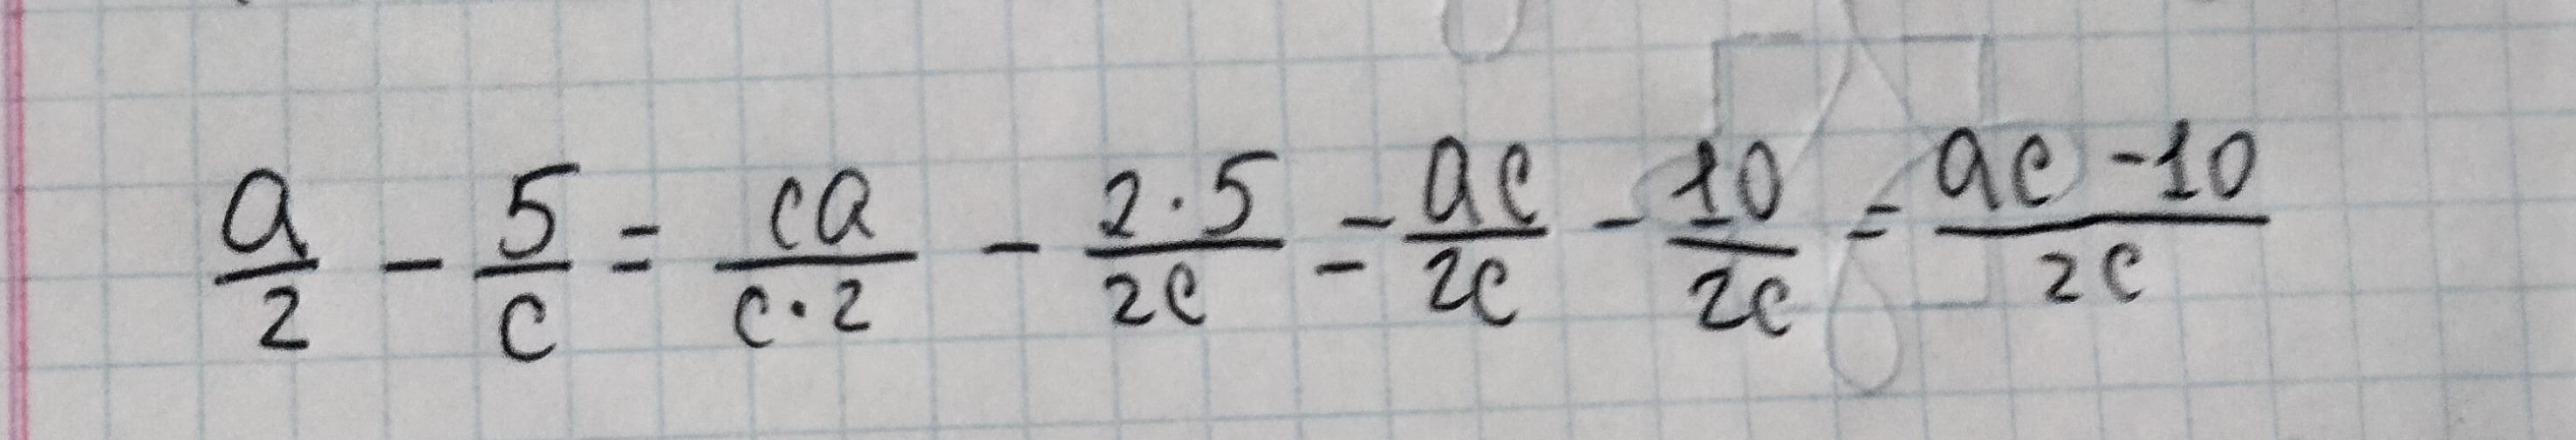 a/2 - 5/c = ca/c·2 - 2·5/2c = ac/2c - 10/2c = ac-10/2c